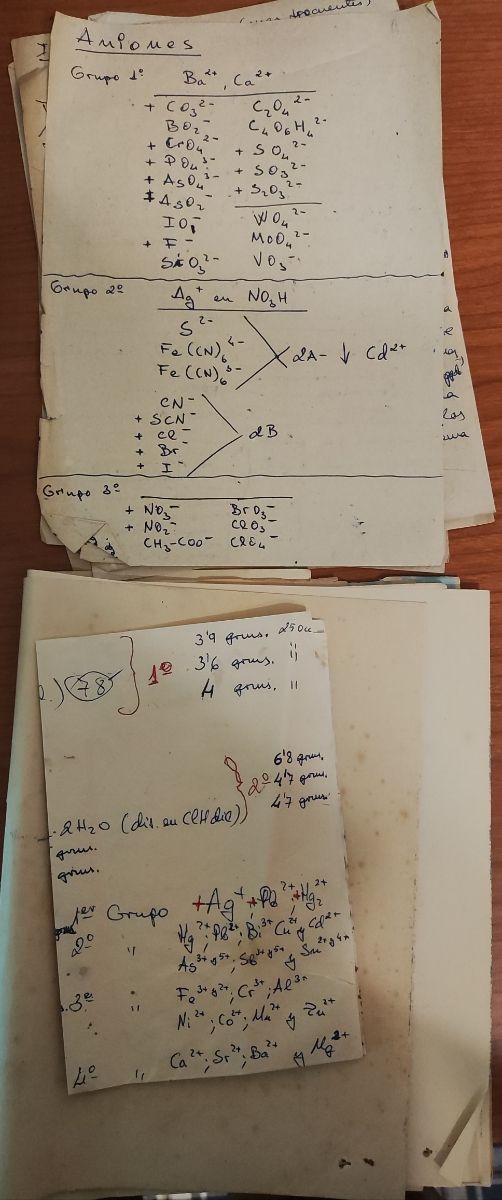 Aniones
Grupo 1º Ba²⁺, Ca²⁺
+ CO₃²⁻ C₂O₄²⁻
BO₂⁻ C₄O₆H₄²⁻
+ CrO₄²⁻ + SO₄²⁻
+ PO₄³⁻ + SO₃²⁻
+ AsO₄³⁻ + S₂O₃²⁻
+ AsO₂⁻
IO₃⁻ WO₄²⁻
+ F⁻ MoO₄²⁻
SiO₃²⁻ VO₃⁻
Grupo 2º Ag⁺ en NO₃H
S²⁻
Fe(CN)₆⁴⁻ 2A- ↓ Cd²⁺
Fe(CN)₆³⁻
CN⁻
+ SCN⁻
+ Cl⁻ 2B
+ Br⁻
+ I⁻
Grupo 3º
+ NO₃⁻ BrO₃⁻
+ NO₂⁻ ClO₃⁻
CH₃-COO⁻ ClO₄⁻
3'9 grms. 250cc
.) 78 } 1º 3'6 grms. "
4 grms. "
6'8 grms.
} 2º 4'7 grms.
4'7 grms.
2H₂O (dis. en ClH dil)
grms.
grms.
1er Grupo +Ag⁺ +Pb²⁺ +Hg₂²⁺
2º " Hg²⁺; Pb²⁺; Bi³⁺ Cu²⁺ y Cd²⁺
As³⁺ y ⁵⁺; Sb³⁺ y ⁵⁺ y Sn²⁺ y ⁴⁺
3º " Fe³⁺ y ²⁺; Cr³⁺; Al³⁺
Ni²⁺; Co²⁺; Mn²⁺ y Zn²⁺
4º " Ca²⁺; Sr²⁺; Ba²⁺ y Mg²⁺